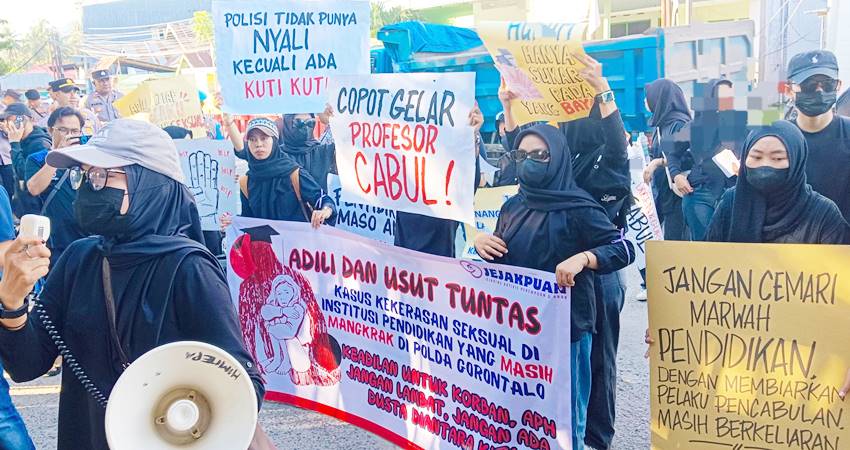 POLISI TIDAK PUNYA
NYALI
KECUALI ADA
KUTI KUTI
COPOT GELAR
PROFESOR
CABUL!
HANYA
PADA
YANG
JEJAKPUAN
ADILI DAN USUT TUNTAS
KASUS KEKERASAN SEKSUAL DI
INSTITUSI PENDIDIKAN YANG MASIH
MANGKRAK DI POLDA GORONTALO
KEADILAN UNTUK KORBAN, APH
JANGAN LAMBAT, JANGAN ADA
DUSTA DIANTARA
JANGAN CEMARI
MARWAH
PENDIDIKAN,
DENGAN MEMBIARKAN
PELAKU PENCABULAN
MASIH BERKELIARAN